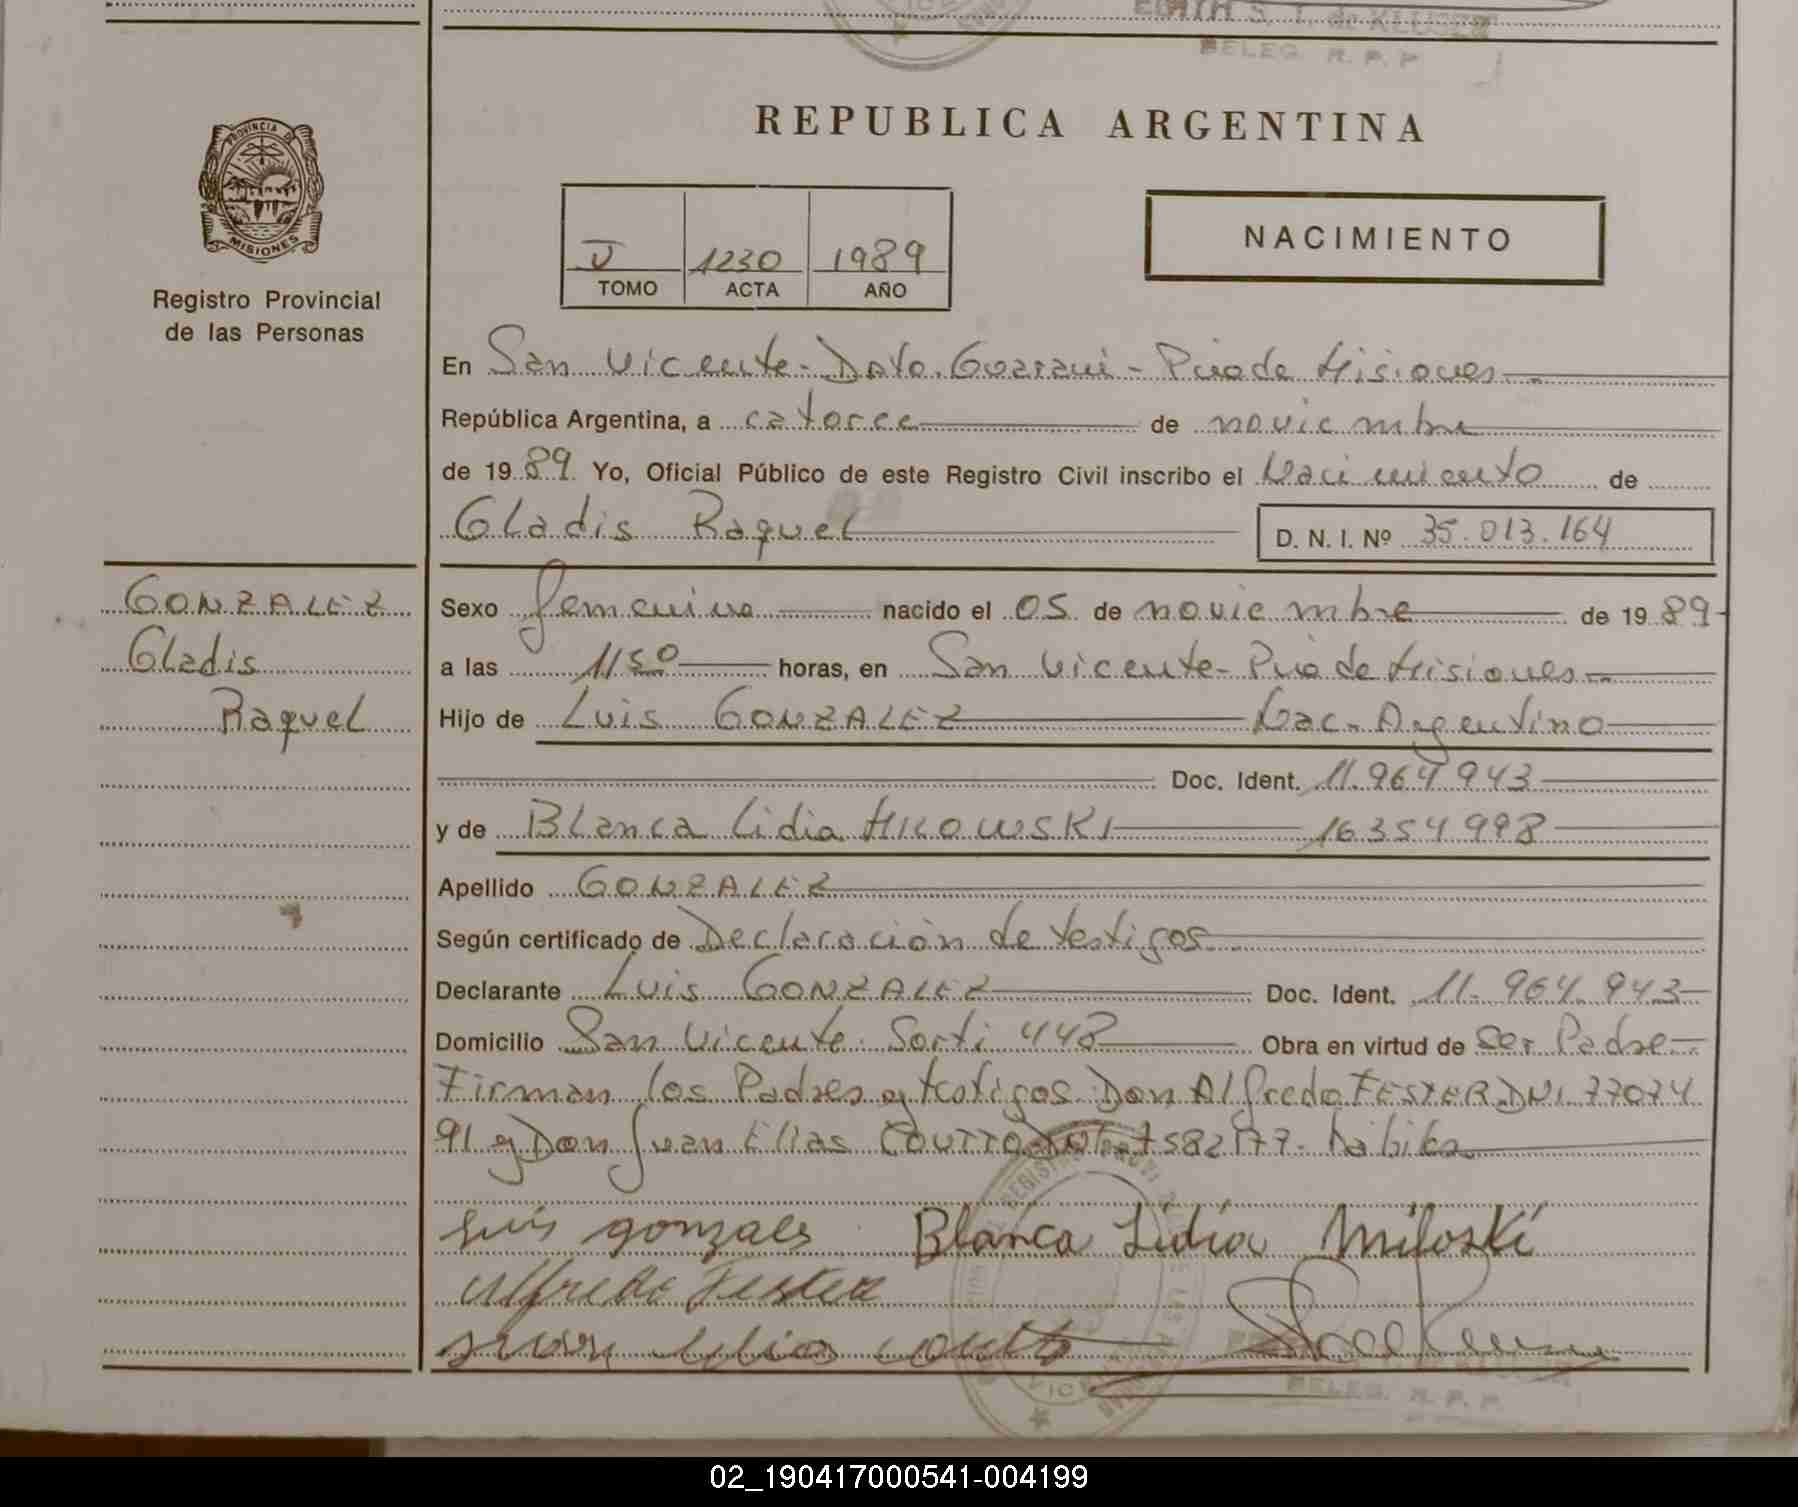 EDITH S. T. de KLUSER
DELEG. R. P. P.
PROVINCIA DE
MISIONES
Registro Provincial
de las Personas
REPUBLICA ARGENTINA
V 1230 1989
TOMO ACTA AÑO
NACIMIENTO
En San Vicente - Dpto. Guarani - Pcia de Misiones
República Argentina, a catorce de noviembre
de 1989. Yo, Oficial Público de este Registro Civil inscribo el Nacimiento de
Gladis Raquel
D. N. I. Nº 35.013.164
GONZALEZ
Gladis
Raquel
Sexo femenino nacido el 05 de noviembre de 1989
a las 11 50 horas, en San Vicente - Pcia de Misiones
Hijo de Luis GONZALEZ Nac. Argentino
Doc. Ident. 11.964 943
y de Blanca Lidia MILOWSKI 16354998
Apellido GONZALEZ
Según certificado de Declaración de testigos
Declarante Luis GONZALEZ Doc. Ident. 11.964.943
Domicilio San Vicente. Sorti 448 Obra en virtud de ser Padre
Firman los Padres y testigos Don Alfredo FESTER DNI 77074
91 y Don Juan Elias COUTTO DNI 7582177.
Luis gonzales Blanca Lidia Miloski
Alfredo Fester
Juan Elias Coutto
DELEG. R. P. P.
02_190417000541-004199